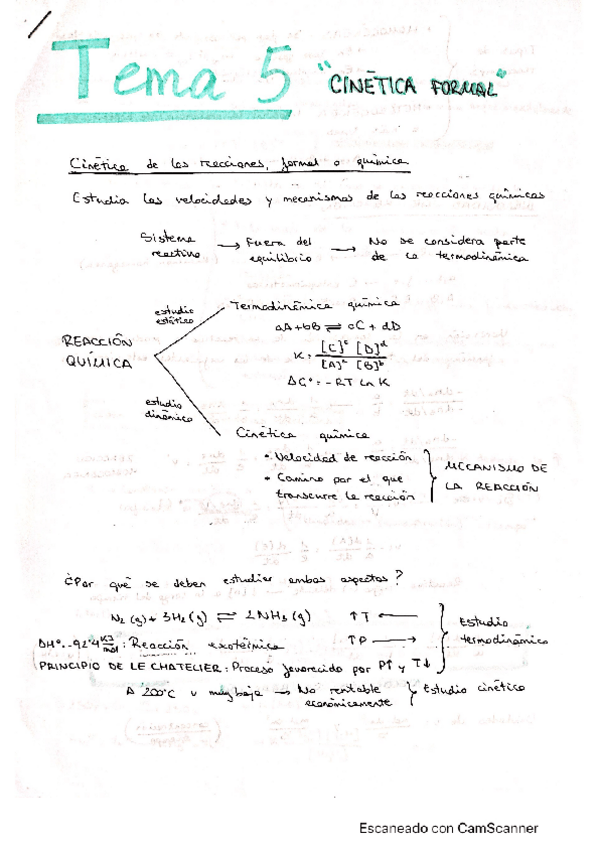 Tema 5 "CINÉTICA FORMAL"
Cinética de las reacciones, formal o química
Estudia las velocidades y mecanismos de las reacciones químicas
Sistema reactivo → Fuera del equilibrio → No se considera parte de la termodinámica
REACCIÓN QUÍMICA
estudio estático
Termodinámica química
aA + bB ⇌ cC + dD
K = [C]^c [D]^d / [A]^a [B]^b
ΔG° = -RT Ln K
estudio dinámico
Cinética química
• Velocidad de reacción
• Camino por el que transcurre la reacción
MECANISMO DE LA REACCIÓN
¿Por qué se deben estudiar ambos aspectos?
N₂(g) + 3H₂(g) ⇌ 2NH₃(g) ↑T ←
↑P →
ΔH° = -92'4 KJ/mol : Reacción exotérmica
PRINCIPIO DE LE CHATELIER : Proceso favorecido por P↑ y T↓
Estudio termodinámico
A 200°C v muy baja → No rentable económicamente } Estudio cinético
Escaneado con CamScanner